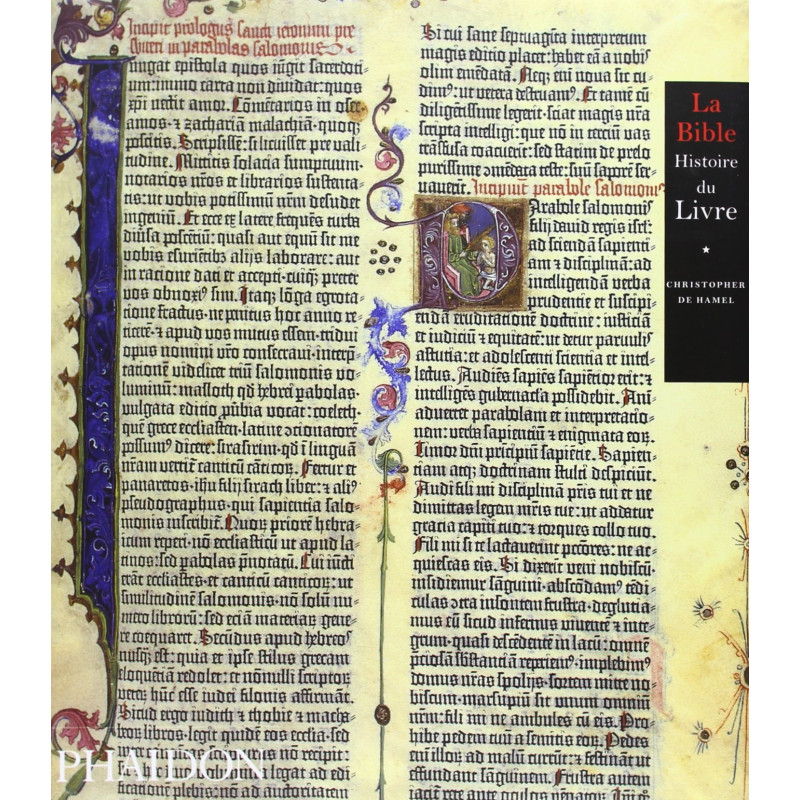 Incipit prologus sancti ieronimi pre
sbiteri in parabolas salomonis
Iungat epistola quos iũgit sacerdoti-
um: immo carta non diuidat: quos
xp̃i nectit amor. Cõmẽtarios in osee-
amos · ⁊ zachariam malachiã · quoqꝫ
poscitis. Scripsissẽ: si licuisset pre vali-
tudine. Mittitis solacia sumptuum-
notarios nr̃os et librarios sustenta-
tis: ut vobis potissimũ nr̃m desudet
ingeniũ. Et ecce ex latere frequẽs turba
diũsa poscẽtiũ: quasi aut equũ sit me
vobis esuriẽtibꝫ alijs laborare: aut
in ratione dati et accepti · cuiqꝫ preter
vos obnoxiꝰ sim. Itaqꝫ lõga egrota-
tione fractus · ne penitus hoc anno re-
ticerẽ · ⁊ apud vos mutus essem · tridui
opus nomini vr̃o consecraui · interp̃-
tationẽ videlicet triũ salomonis vo-
luminũ: masloth qd̃ hebrei parabolas ·
vulgata editio ꝓuerbia vocat: coeleth ·
quẽ grece ecclesiasten · latine ↄcionatorẽ
possumꝰ dicere: sirasirim · qd̃ i linguã
nr̃am vertit̃ canticũ cãticoꝝ. Fertur et
panaretos · ihu filij sirach liber: ⁊ aliꝰ
pseudographus · qui sapientia salo-
monis inscribit̃. Quoꝝ priorẽ hebra-
icum reperi · nõ ecclesiasticũ ut apud la-
tinos: sed parabolas p̃notatũ. Cui iũcti
erãt ecclesiastes · et canticũ canticoꝝ: ut
similitudinẽ salomonis · nõ solũ nu-
mero librorũ: sed eciã materiaꝝ gene-
re coequaret. Secũdus apud hebreos
nusqꝫ est: quia et ipse stilus grecam
eloquẽtiã redolet: et nõnulli scriptoꝝ
veteꝝ hũc esse iudei filonis affirmãt.
Sicut ergo iudith ⁊ thobie ⁊ macha-
beoꝝ libros · legit quidẽ eos ecclesia · sed
canonicas nõ recipit:
legat ad edi-
nõ ad auctoritatem
Si cui sane septuagĩta interpretum
magis editio placet: habet eã a nobis
olim emẽdatã. Neqꝫ em̃ noua sic cu-
dimꝰ: ut vetera destruamꝰ. Et tamẽ cũ
diligẽtissime legerit · sciat magis nr̃a
scripta intelligi: que nõ in terciũ vas
trãsfusa coacuerit: sed statim de prelo
purissime ↄmẽdata teste: suũ saporẽ ser-
uauerit. Incipiunt parabole salomonis
Parabole salomonis
filij dauid regis isrl̃:
ad sciendã sapienti-
am ⁊ disciplinã: ad
intelligendã verba
prudentie et suscipi-
endã eruditationẽ doctrine: iusticiã
et iudiciũ ⁊ equitatẽ: ut detur paruulis
astutia: et adolescenti scientia et intel-
lectus. Audiẽs sapiẽs sapiẽtior erit: ⁊
intelligẽs gubernacla possidebit. Ani-
aduertet parabolam et interpretatio-
nem: verba sapientiũ ⁊ enigmata eoꝝ.
Timor dñi principiũ sapiẽtie. Sapien-
tiam atqꝫ doctrinam stulti despiciunt.
Audi fili mi disciplinã pr̃is tui et ne
dimittas legem mr̃is tue: ut addatur
gracia capiti tuo: ⁊ torques collo tuo.
Fili mi si te lactauerint pctõres: ne ac-
quiescas eis. Si dixerit veni nobiscũ ·
insidiemur sãguini · abscõdamꝰ tẽdi-
culas ↄtra insontem frustra · deglutia-
mus eũ sicud infernus viuentẽ ⁊ inte-
grum · quasi descẽdentẽ in lacũ: omnẽ
p̃ciosã sb̃stanciã repriemꝰ · implebimꝰ
domus nr̃as spolijs · sortem mitte no-
biscum · marsupiũ sit unum omniũ
nr̃m: fili mi ne ambules cũ eis. Pro-
hibe pedem tuũ a semitis eoꝝ. Pedes
em̃ illoꝝ ad malũ currũt: ⁊ festinãt ut
effundant sãguinem. Frustra autem
iacitur rete ante oculos
La
Bible
Histoire
du
Livre
★
CHRISTOPHER
DE HAMEL
PHAIDON